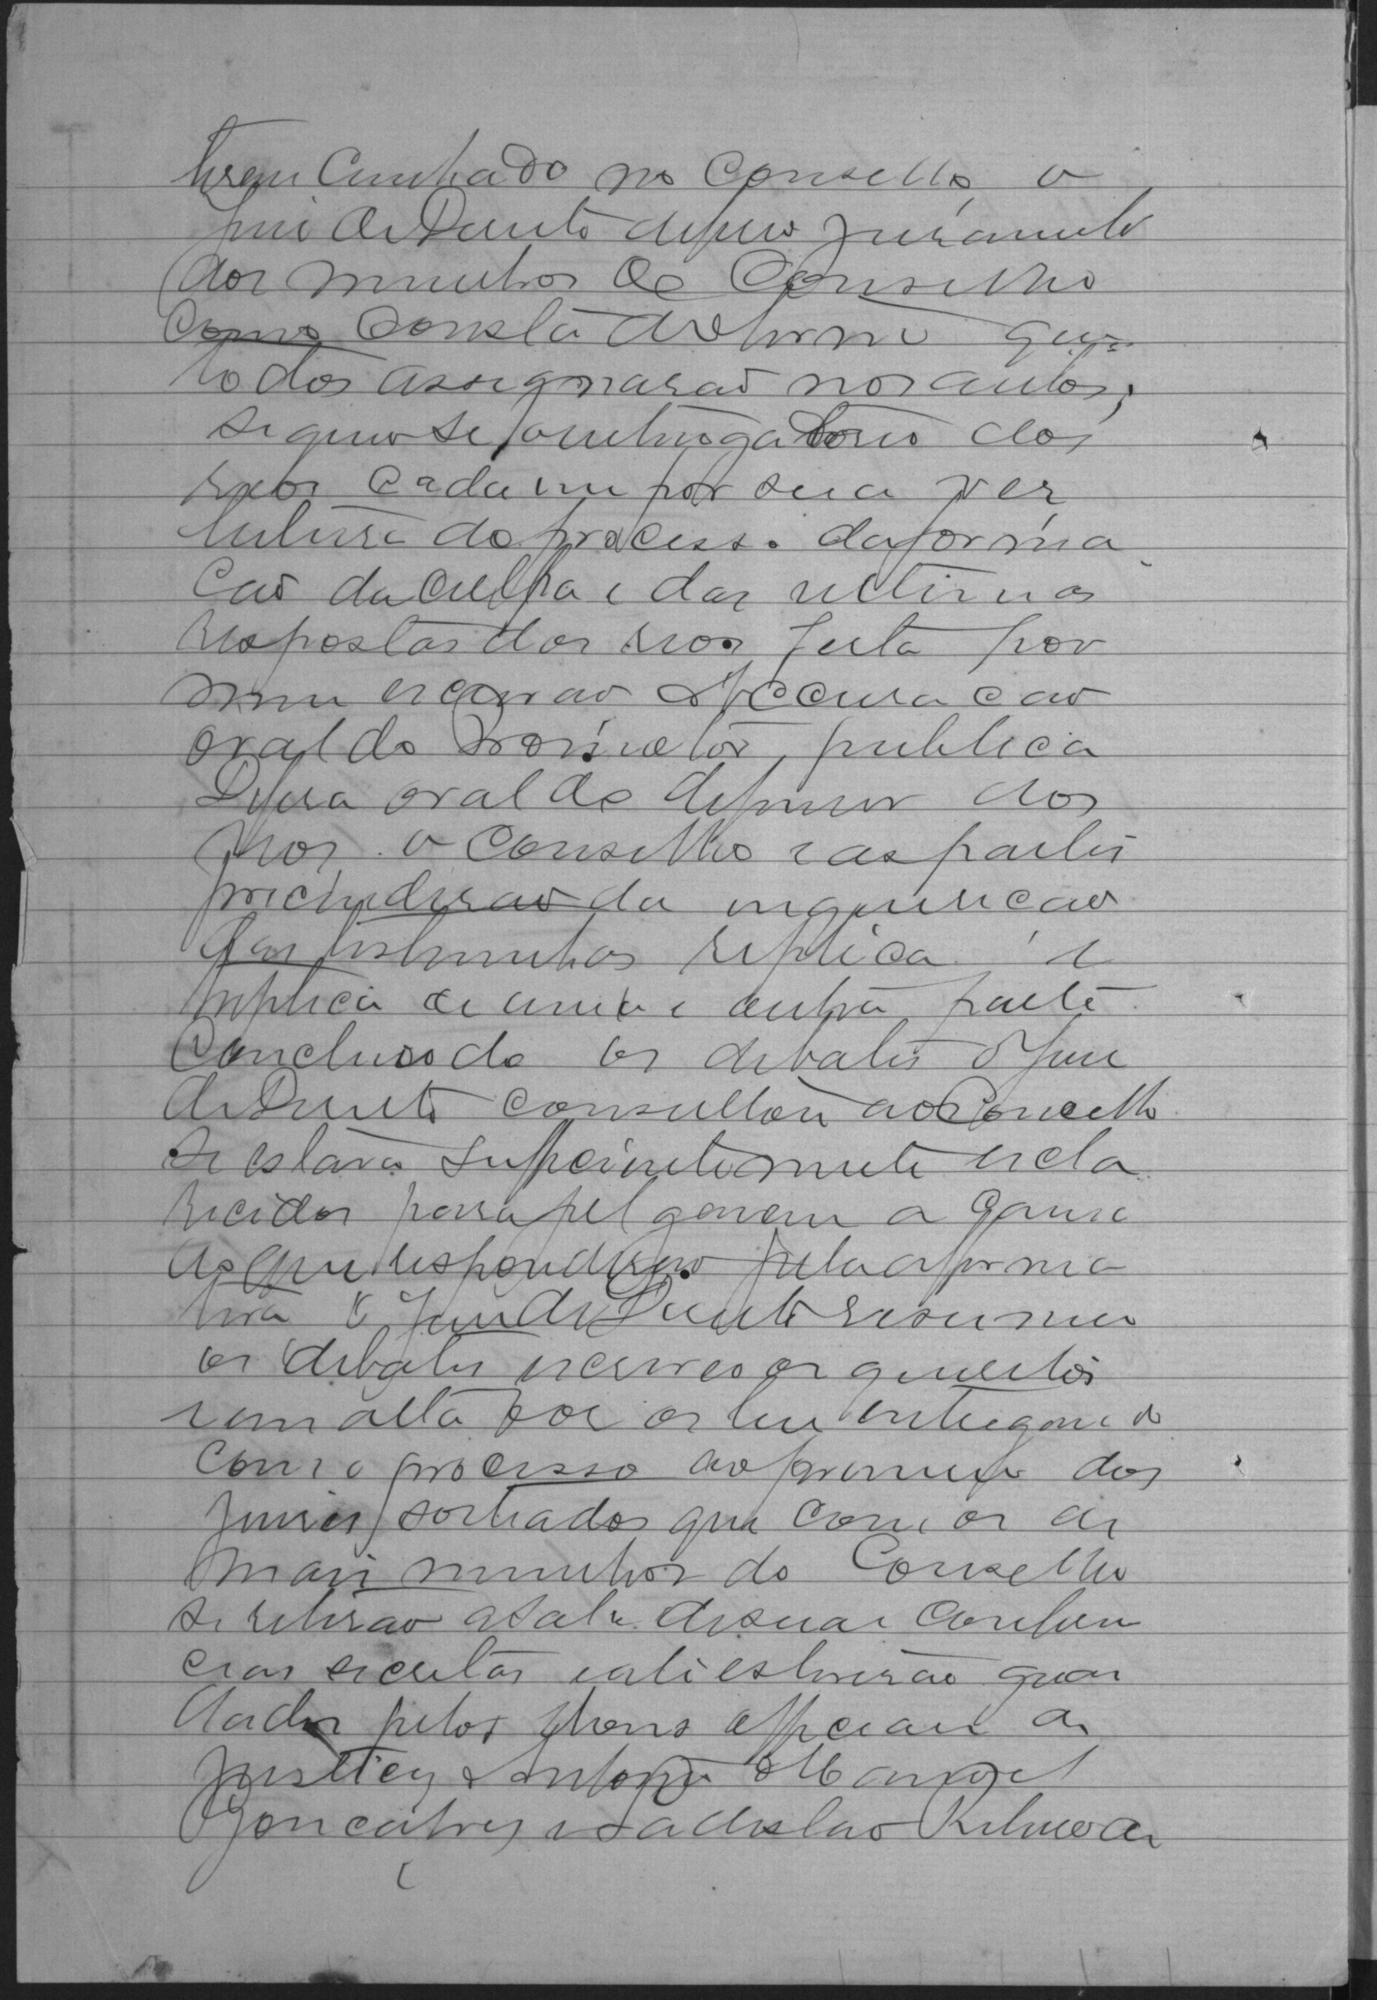 Cunhado no Conselho, o
Juiz de Direito deferio juramento
aos membros do Conselho
como consta do termo que
todos assignarão nos autos;
seguio se o interrogatorio dos
reos cada um por sua vez
leitura do processo da forma
ção da culpa e das ultimas
respostas dos reos feita por
mim escrivão Accusação
oral do Promotor publico
Defesa oral do defensor dos
reos. o Conselho e as partes
prescindirão da inquirição
das testemunhas replica e
treplica de uma e outra parte.
Concluido os debates o Juiz
de Direito consultou ao Concelho
se estava sufficientemente escla
recidos para julgarem a causa
ao que responderão pela afirma
tiva o Juiz de Direito resumio
os debates escreveo os quesitos
em alta voz os leu entregando
com o processo ao primeiro dos
Juizes sorteados que com os de
mais membros do Conselho
se retirão a sala de suas conferen
cias secretas e ali estiverão guar
dados pelos officiaes de
Justiça Antonio Manoel
Gonçalves e Ladislao Ribeiro de